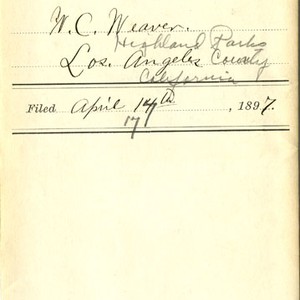 W. C. Weaver.
Highland Parks
Los. Angeles County
California
Filed April 14th, 1897.
17